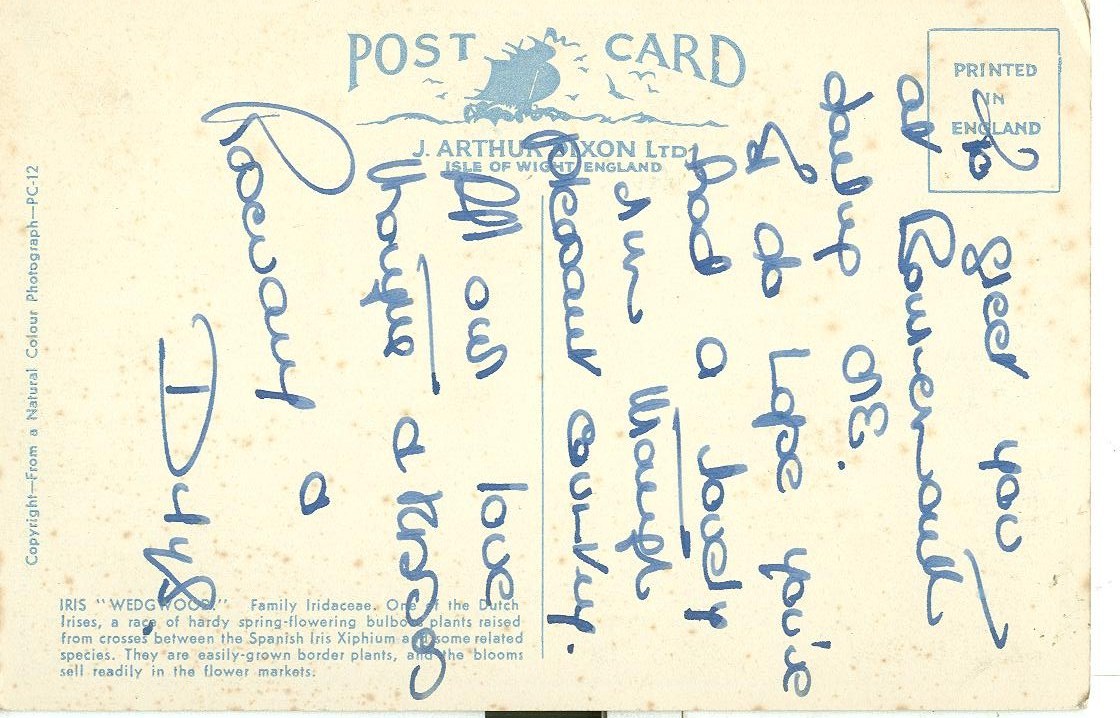 POST CARD
J. ARTHUR DIXON LTD.
ISLE OF WIGHT, ENGLAND
PRINTED
IN
ENGLAND
To Greet you
at Bournemouth
OK.
I do hope you've
had a lovely
run through
pleasant country.
All our love
& kisses
Rosemary &
Copyright—From a Natural Colour Photograph—PC-12
IRIS "WEDGWOOD." Family Iridaceae. One of the Dutch
Irises, a race of hardy spring-flowering bulbous plants raised
from crosses between the Spanish Iris Xiphium and some related
species. They are easily-grown border plants, and the blooms
sell readily in the flower markets.